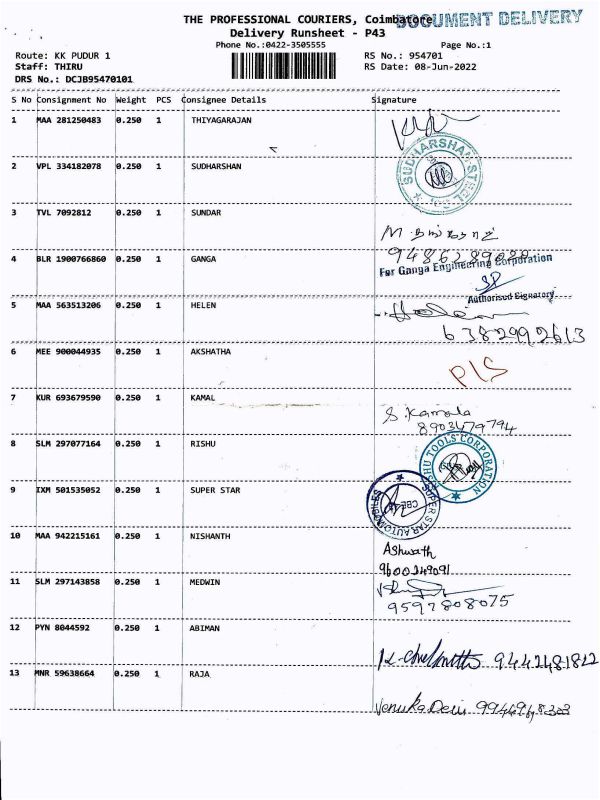 THE PROFESSIONAL COURIERS, Coimbatore
DOCUMENT DELIVERY
Delivery Runsheet - P43
Phone No.:0422-3505555 Page No.:1
Route: KK PUDUR 1 RS No.: 954701
Staff: THIRU RS Date: 08-Jun-2022
DRS No.: DCJB95470101
S No Consignment No Weight PCS Consignee Details Signature
1 MAA 281250483 0.250 1 THIYAGARAJAN
SUDHARSHAN STEEL
2 VPL 334182078 0.250 1 SUDHARSHAN
3 TVL 7092812 0.250 1 SUNDAR
4 BLR 1900766860 0.250 1 GANGA
For Ganga Engineering Corporation
Authorised Signatory
5 MAA 563513206 0.250 1 HELEN Helen
6382992613
6 MEE 900044935 0.250 1 AKSHATHA
P/S
7 KUR 693679590 0.250 1 KAMAL S. Kamala
8903679794
8 SLM 297077164 0.250 1 RISHU
SHU TOOLS CORPORATION
9 IXM 501535052 0.250 1 SUPER STAR
SUPER STAR AUTOMOBILES
CBE
10 MAA 942215161 0.250 1 NISHANTH
Ashwath
9600349091
11 SLM 297143858 0.250 1 MEDWIN
9597808075
12 PYN 8044592 0.250 1 ABIMAN
9442481822
13 MNR 59638664 0.250 1 RAJA
Venuka Devi